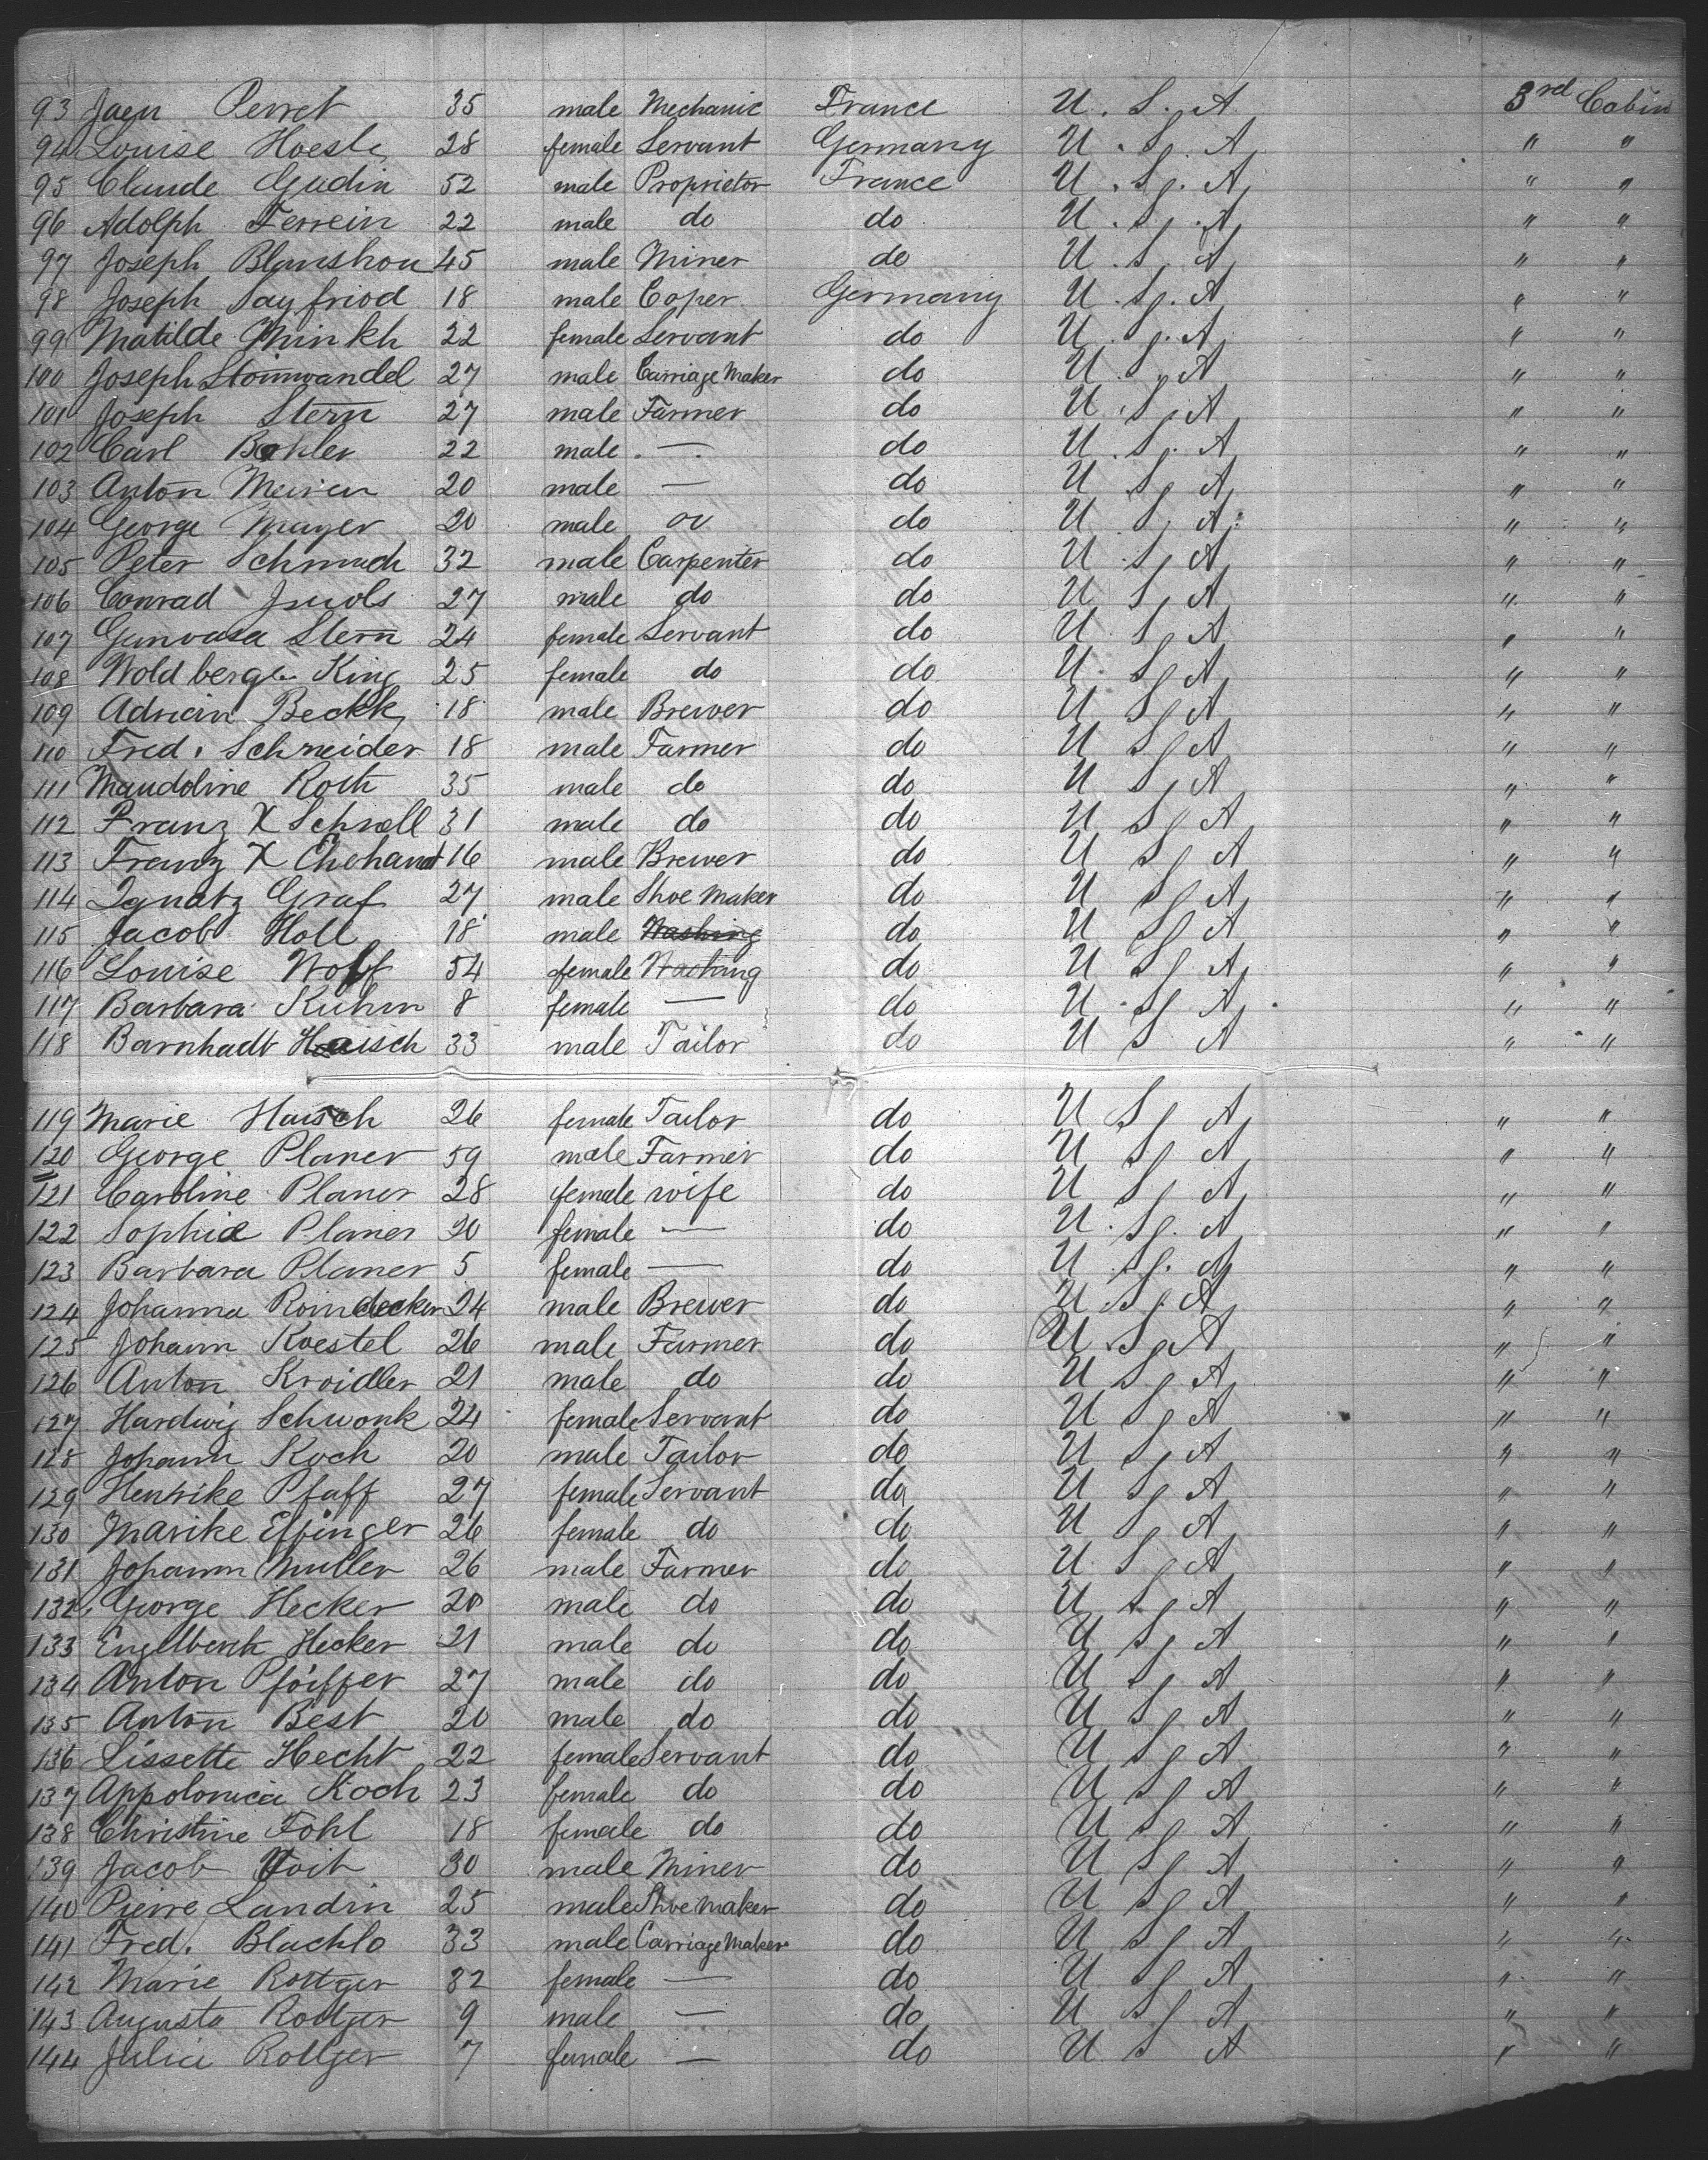 93 Jaen Perret 35 male Mechanic France U. S. A 3rd Cabin
94 Louise Hoesle 28 female Servant Germany U. S. A " "
95 Claude Gudin 52 male Proprietor France U. S. A " "
96 Adolph Terrein 22 male do do U. S. A " "
97 Joseph Blanshou 45 male Miner do U. S. A " "
98 Joseph Sayfriod 18 male Coper Germany U. S. A " "
99 Matilde 22 female Servant do U. S. A " "
100 Joseph Stoinwandel 27 male Carriage Maker do U. S. A " "
101 Joseph Stern 27 male Farmer do U. S. A " "
102 Carl Bohler 22 male — do U. S. A " "
103 Anton 20 male — do U S A " "
104 George Mayer 20 male do U S A " "
105 Peter 32 male Carpenter do U S A " "
106 Conrad 27 male do do U S A " "
107 Stern 24 female Servant do U S A " "
108 Woldberge King 25 female do do U. S A " "
109 Adrian Beckk 18 male Brewer do U S A " "
110 Fred. Schneider 18 male Farmer do U S A " "
111 Maudoline Roth 35 male do do U S A " "
112 Franz X Schroll 31 male do do U S A " "
113 Franz X 16 male Brewer do U S A " "
114 Ignatz Graf 27 male Shoe Maker do U S A " "
115 Jacob Holl 18 male Washing do U S A " "
116 Louise Wolf 54 female Washing do U S A " "
117 Barbara Kuhm 8 female — do U. S A " "
118 Barnhadt Haisch 33 male Tailor do U S A " "
119 Marie Haisch 26 female Tailor do U S A " "
120 George Planer 59 male Farmer do U S A " "
121 Caroline Planer 28 female wife do U S A " "
122 Sophie Planer 20 female — do U. S. A " "
123 Barbara Planer 5 female — do U S. A " "
124 Johanna Roindecker 24 male Brewer do U. S. A " "
125 Johann Koestel 26 male Farmer do U. S A " "
126 Anton Kroidler 21 male do do U S A " "
127 Hardwig Schwonk 24 female Servant do U S A " "
128 Johann Koch 20 male Tailor do U S A " "
129 Henrike Pfaff 27 female Servant do U S A " "
130 Marike Effinger 26 female do do U S A " "
131 Johann Muller 26 male Farmer do U. S A " "
132 George Hecker 20 male do do U S A " "
133 Engelberth Hecker 21 male do do U S A " "
134 Anton Pfoiffer 27 male do do U S A " "
135 Anton Best 20 male do do U S A " "
136 Lissette Hecht 22 female Servant do U S A " "
137 Appolonia Koch 23 female do do U S A " "
138 Christine Fohl 18 female do do U S A " "
139 Jacob Voit 30 male Miner do U S A " "
140 Pierre Landin 25 male Shoe Maker do U S A " "
141 Fred. Blachlo 33 male Carriage Maker do U S A " "
142 Marie Rottger 32 female — do U S A " "
143 Augusta Rottger 9 male — do U S A " "
144 Julia Rottger 7 female — do U. S A " "